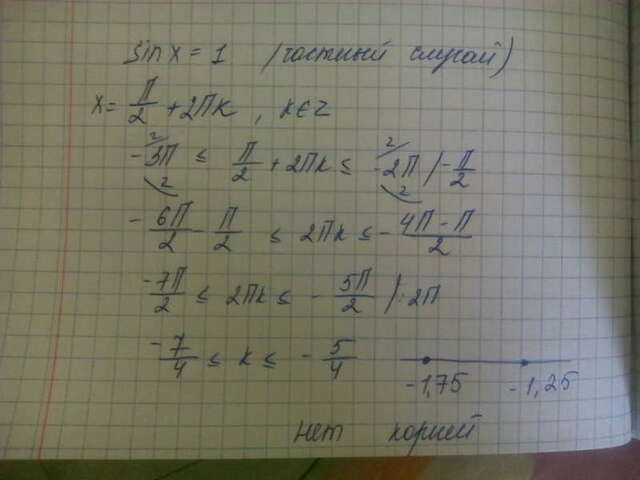 sin x = 1 (частный случай)
x = π/2 + 2πk, k ∈ z
-3π ≤ π/2 + 2πk ≤ -2π / -π/2
-6π/2 - π/2 ≤ 2πk ≤ -4π - π/2
-7π/2 ≤ 2πk ≤ -5π/2 / : 2π
-7/4 ≤ k ≤ -5/4
-1,75 -1,25
нет корней